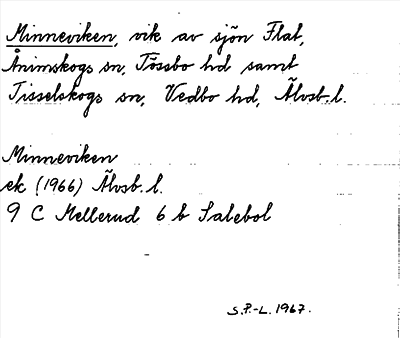 Minneviken, vik av sjön Flat,
Ånimskogs sn, Tössbo hd samt
Tisselskogs sn, Vedbo hd, Älvsb. l.
Minneviken
ek (1966) Älvsb. l.
9 C Mellerud 6 b Salebol
S.P.-L. 1967.